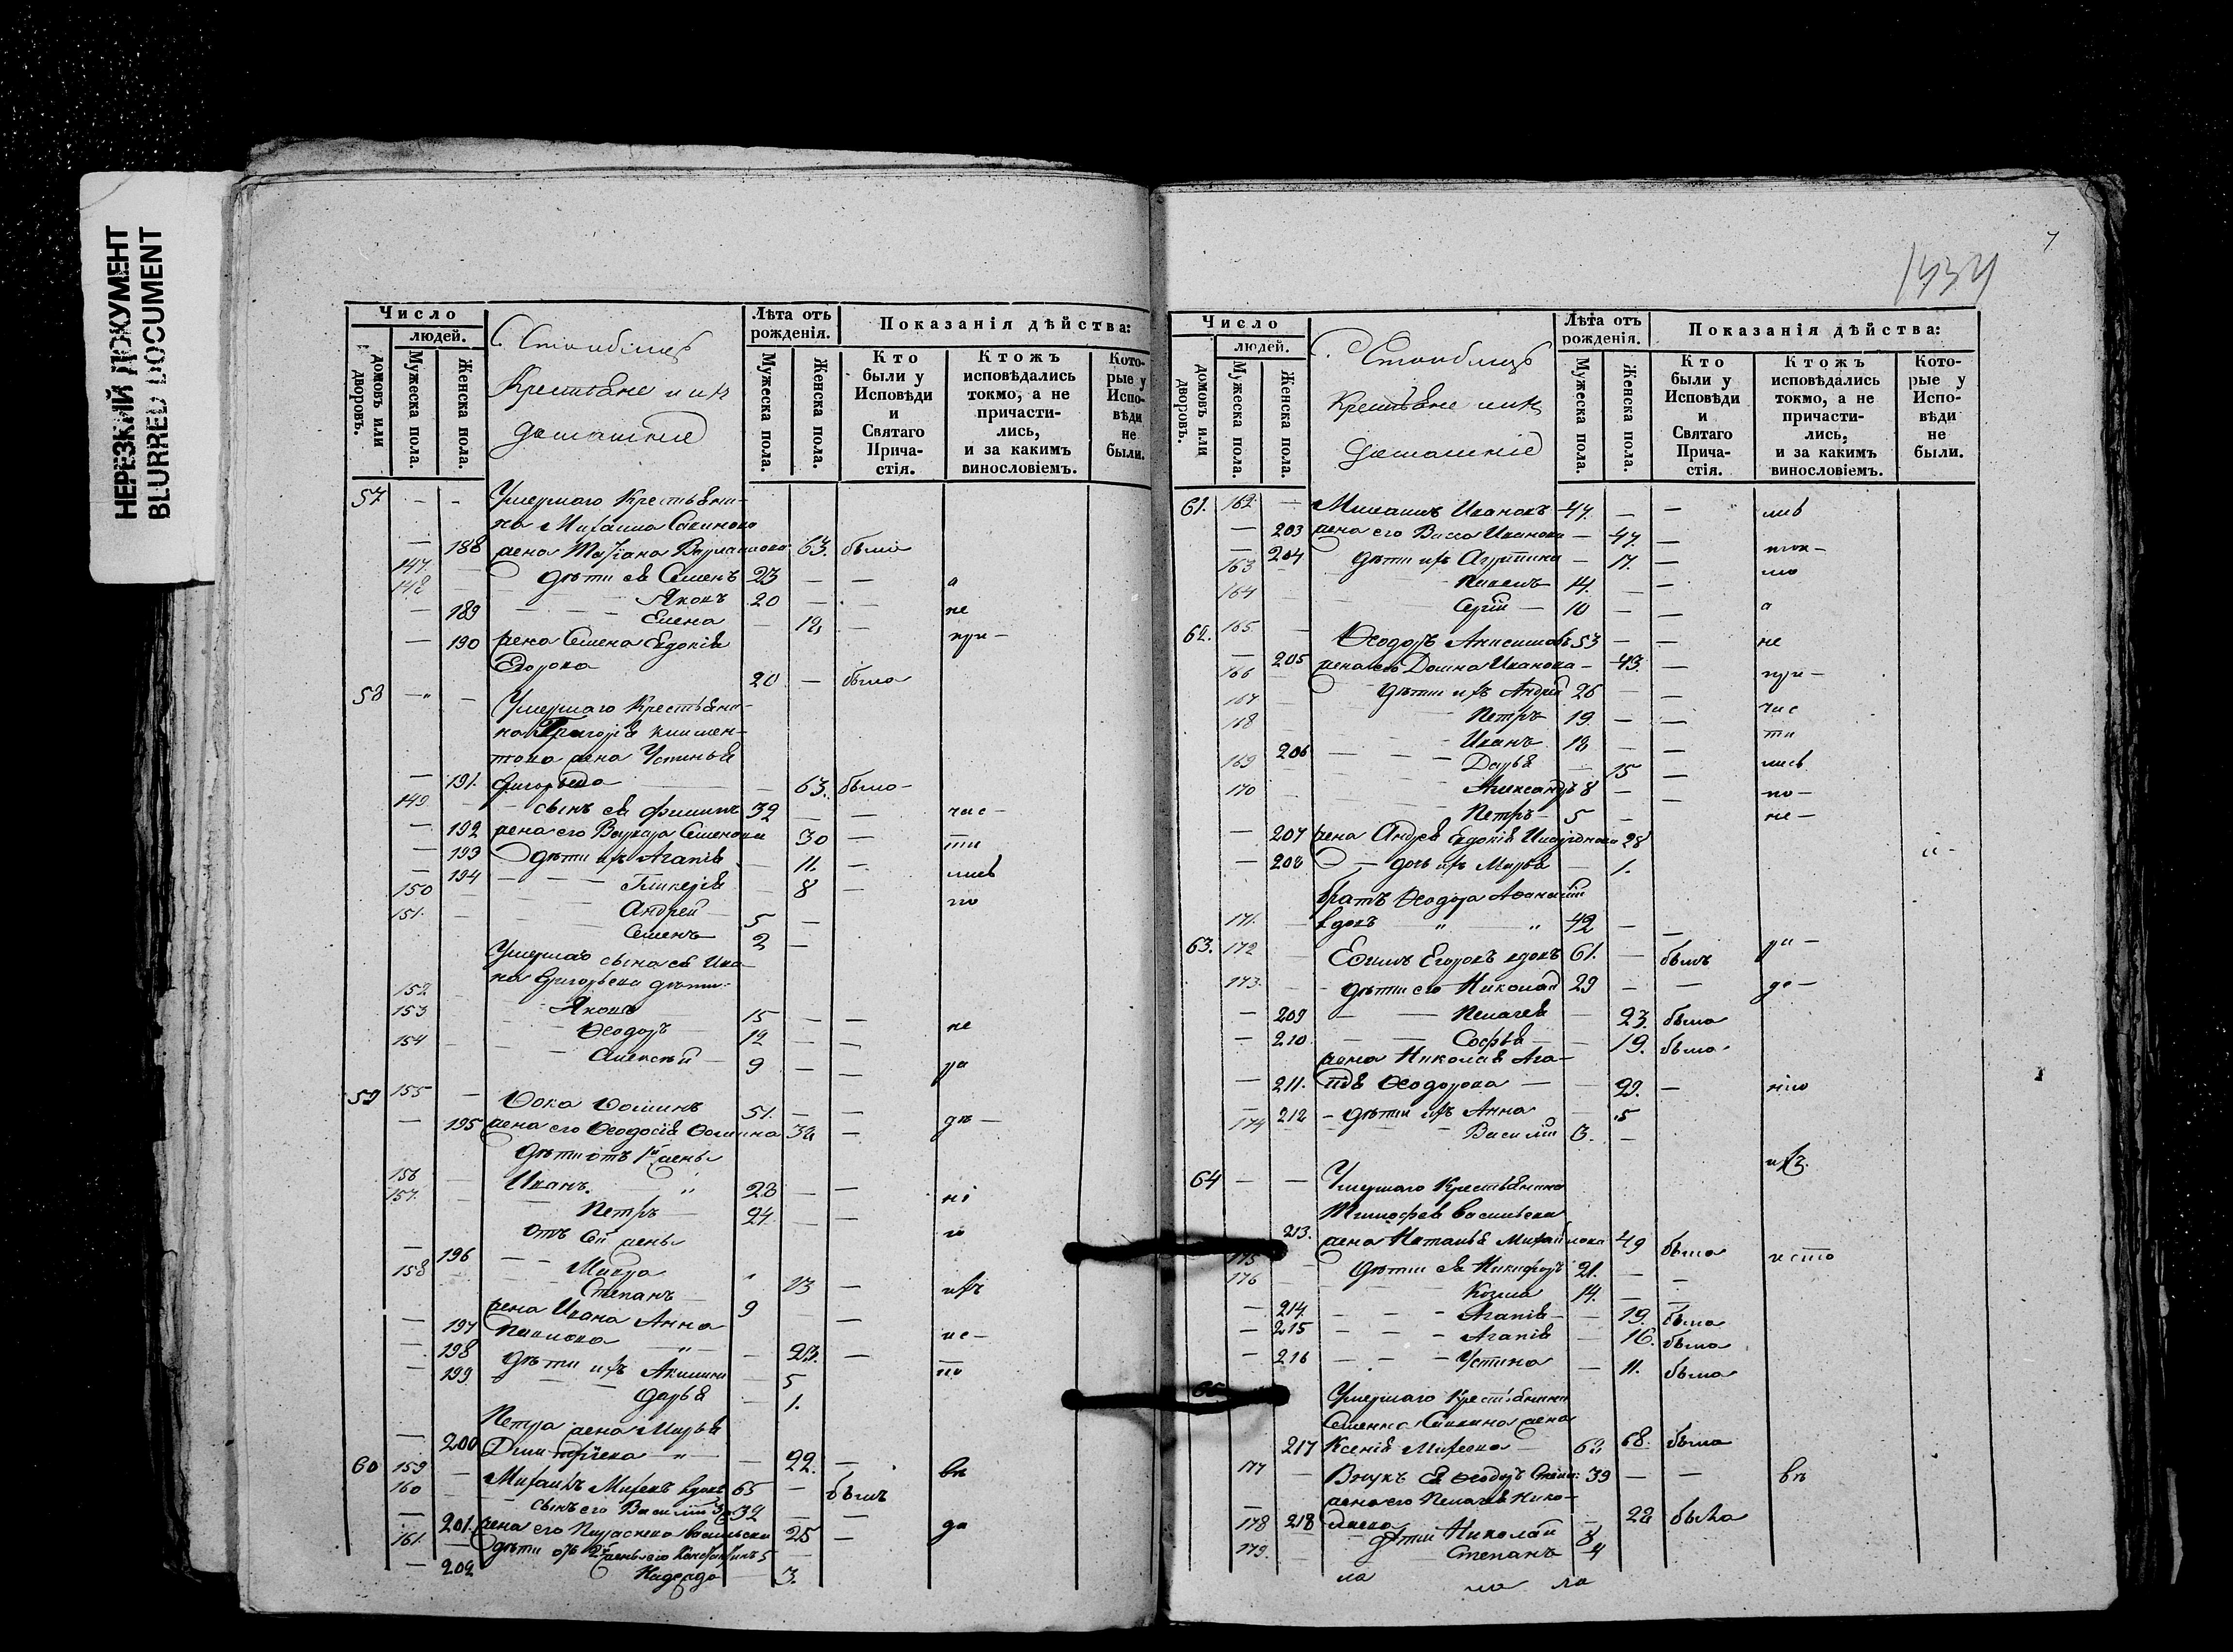 НЕРЕЗКИЙ ДОКУМЕНТ
BLURRED DOCUMENT
Число
людей.
домовъ или дворовъ.
Мужеска пола.
Женска пола.
Крестьяне и ихъ
домашніе
Лѣта отъ рожденія.
Мужеска пола.
Женска пола.
Показанія дѣйства:
Кто были у Исповѣди и Святаго Прича-стія.
Ктожъ исповѣдались токмо, а не причасти-лись, и за какимъ винословіемъ.
Кото-рые у Испо-вѣди не были.
57 — — Умершаго Крестьяни-
на Михаила Савинова
— 188 жена Татіана 63. была
147. — дѣти ея Семенъ 23 — —
148 — Яковъ 20 — — а
— 189 Елена — — не
— 190 жена Семена Евдокія при-
Егорова 20 — была
58 — — Умершаго Крестьяни-
на Григорія
жена Устинья
— 191. Григорьева 63. была
149 — сынъ ея Филиппъ 32 — — час-
— 192 жена его Варвара Семенова 30 — ти
— 193 дѣти ихъ Агапія — 11. — лись
— 194 Гликерія — 8 — по
150 — Андрей 5 —
151. — Семенъ 2 —
Умершаго сына ея Ива-
на Григорьева дѣти
152 — Яковъ 15 — — не
153 — Ѳеодоръ 12 — —
154 — Алексѣй 9 — — ра
59 155 — Ѳока Ѳоминъ 51. — —
— 195 жена его Ѳеодосія Ѳомина — дѣ-
дѣти отъ 1й жены
156 — Иванъ 28 — — ні
157. — Петръ 24 — —
отъ сей жены
— 196 Мавра 13 — ихъ
158 — Степанъ 9 —
жена Ивана Анна
— 197 Павлова — 23. — не-
— 198 дѣти ихъ Акилина — 5 по
— 199 Дарья — 1.
Петра жена Марья
— 200 Дмитріева — 22. —
60 159 — Михаилъ Михеевъ вдовъ 65 — былъ въ
160 — сынъ его Василій 32 — —
— 201. жена его Параскева Васильева 25 — да
161. — дѣти отъ жены его Константинъ 5 —
— 202 Надежда — 3.
7
1434
Число
людей.
домовъ или дворовъ.
Мужеска пола.
Женска пола.
Крестьяне и ихъ
домашніе
Лѣта отъ рожденія.
Мужеска пола.
Женска пола.
Показанія дѣйства:
Кто были у Исповѣди и Святаго Прича-стія.
Ктожъ исповѣдались токмо, а не причасти-лись, и за какимъ винословіемъ.
Кото-рые у Испо-вѣди не были.
61. 162. — Михаилъ Ивановъ 47. — — лись
— 203 жена его Васса Иванова — 47. — ток-
— 204 дѣти ихъ Агриппина — 17. — мо
163 — Павелъ 14. — — а
164 — Сергій 10 — —
62. 165. — Ѳеодоръ Анисимовъ 53 — — не
— 205 жена его Домна Иванова — 43. — при-
166 — дѣти ихъ Андрей 26 — —
167 — Петръ 19. — — час
168 — Иванъ 13 — — ти
— 206 Дарья — 15 — лись
169 — Александръ 8 — — по-
170 — Петръ 5 — не-
— 207 жена Андрея Евдокія 28
— 208 дочь ихъ Марья — 1.
братъ Ѳеодора Аѳанасій
171. — вдовъ 42 — —
63. 172 — Ефимъ Егоровъ вдовъ 61. — былъ ра-
173. — дѣти его Николай 29 — — де-
— 209 Пелагея — 23. была
— 210 Софья — 19. была
жена Николая Ага-
— 211. пія Ѳеодорова — 29. — нію
— 212 дѣти ихъ Анна — 5
174 — Василій 3. — ихъ.
64 — — Умершаго Крестьянина
Тимофея Васильева
213. жена Наталья Михайлова 49 была
175 дѣти ея Никифоръ 21. — —
176 — Козма 14. — —
— 214. Агапія — 19. была
— 215 Агапія — 16. была
— 216 Устина — 11. была
65 Умершаго Крестьянина
Семена Савина жена
217 Ксенія Михеева 68. была
177 — Внукъ ея Ѳеодоръ 39 — — въ
жена его Пелагея Нико-
— 218 лаева — 28 была
178 — дѣти Николай 8
179. — Степанъ 4